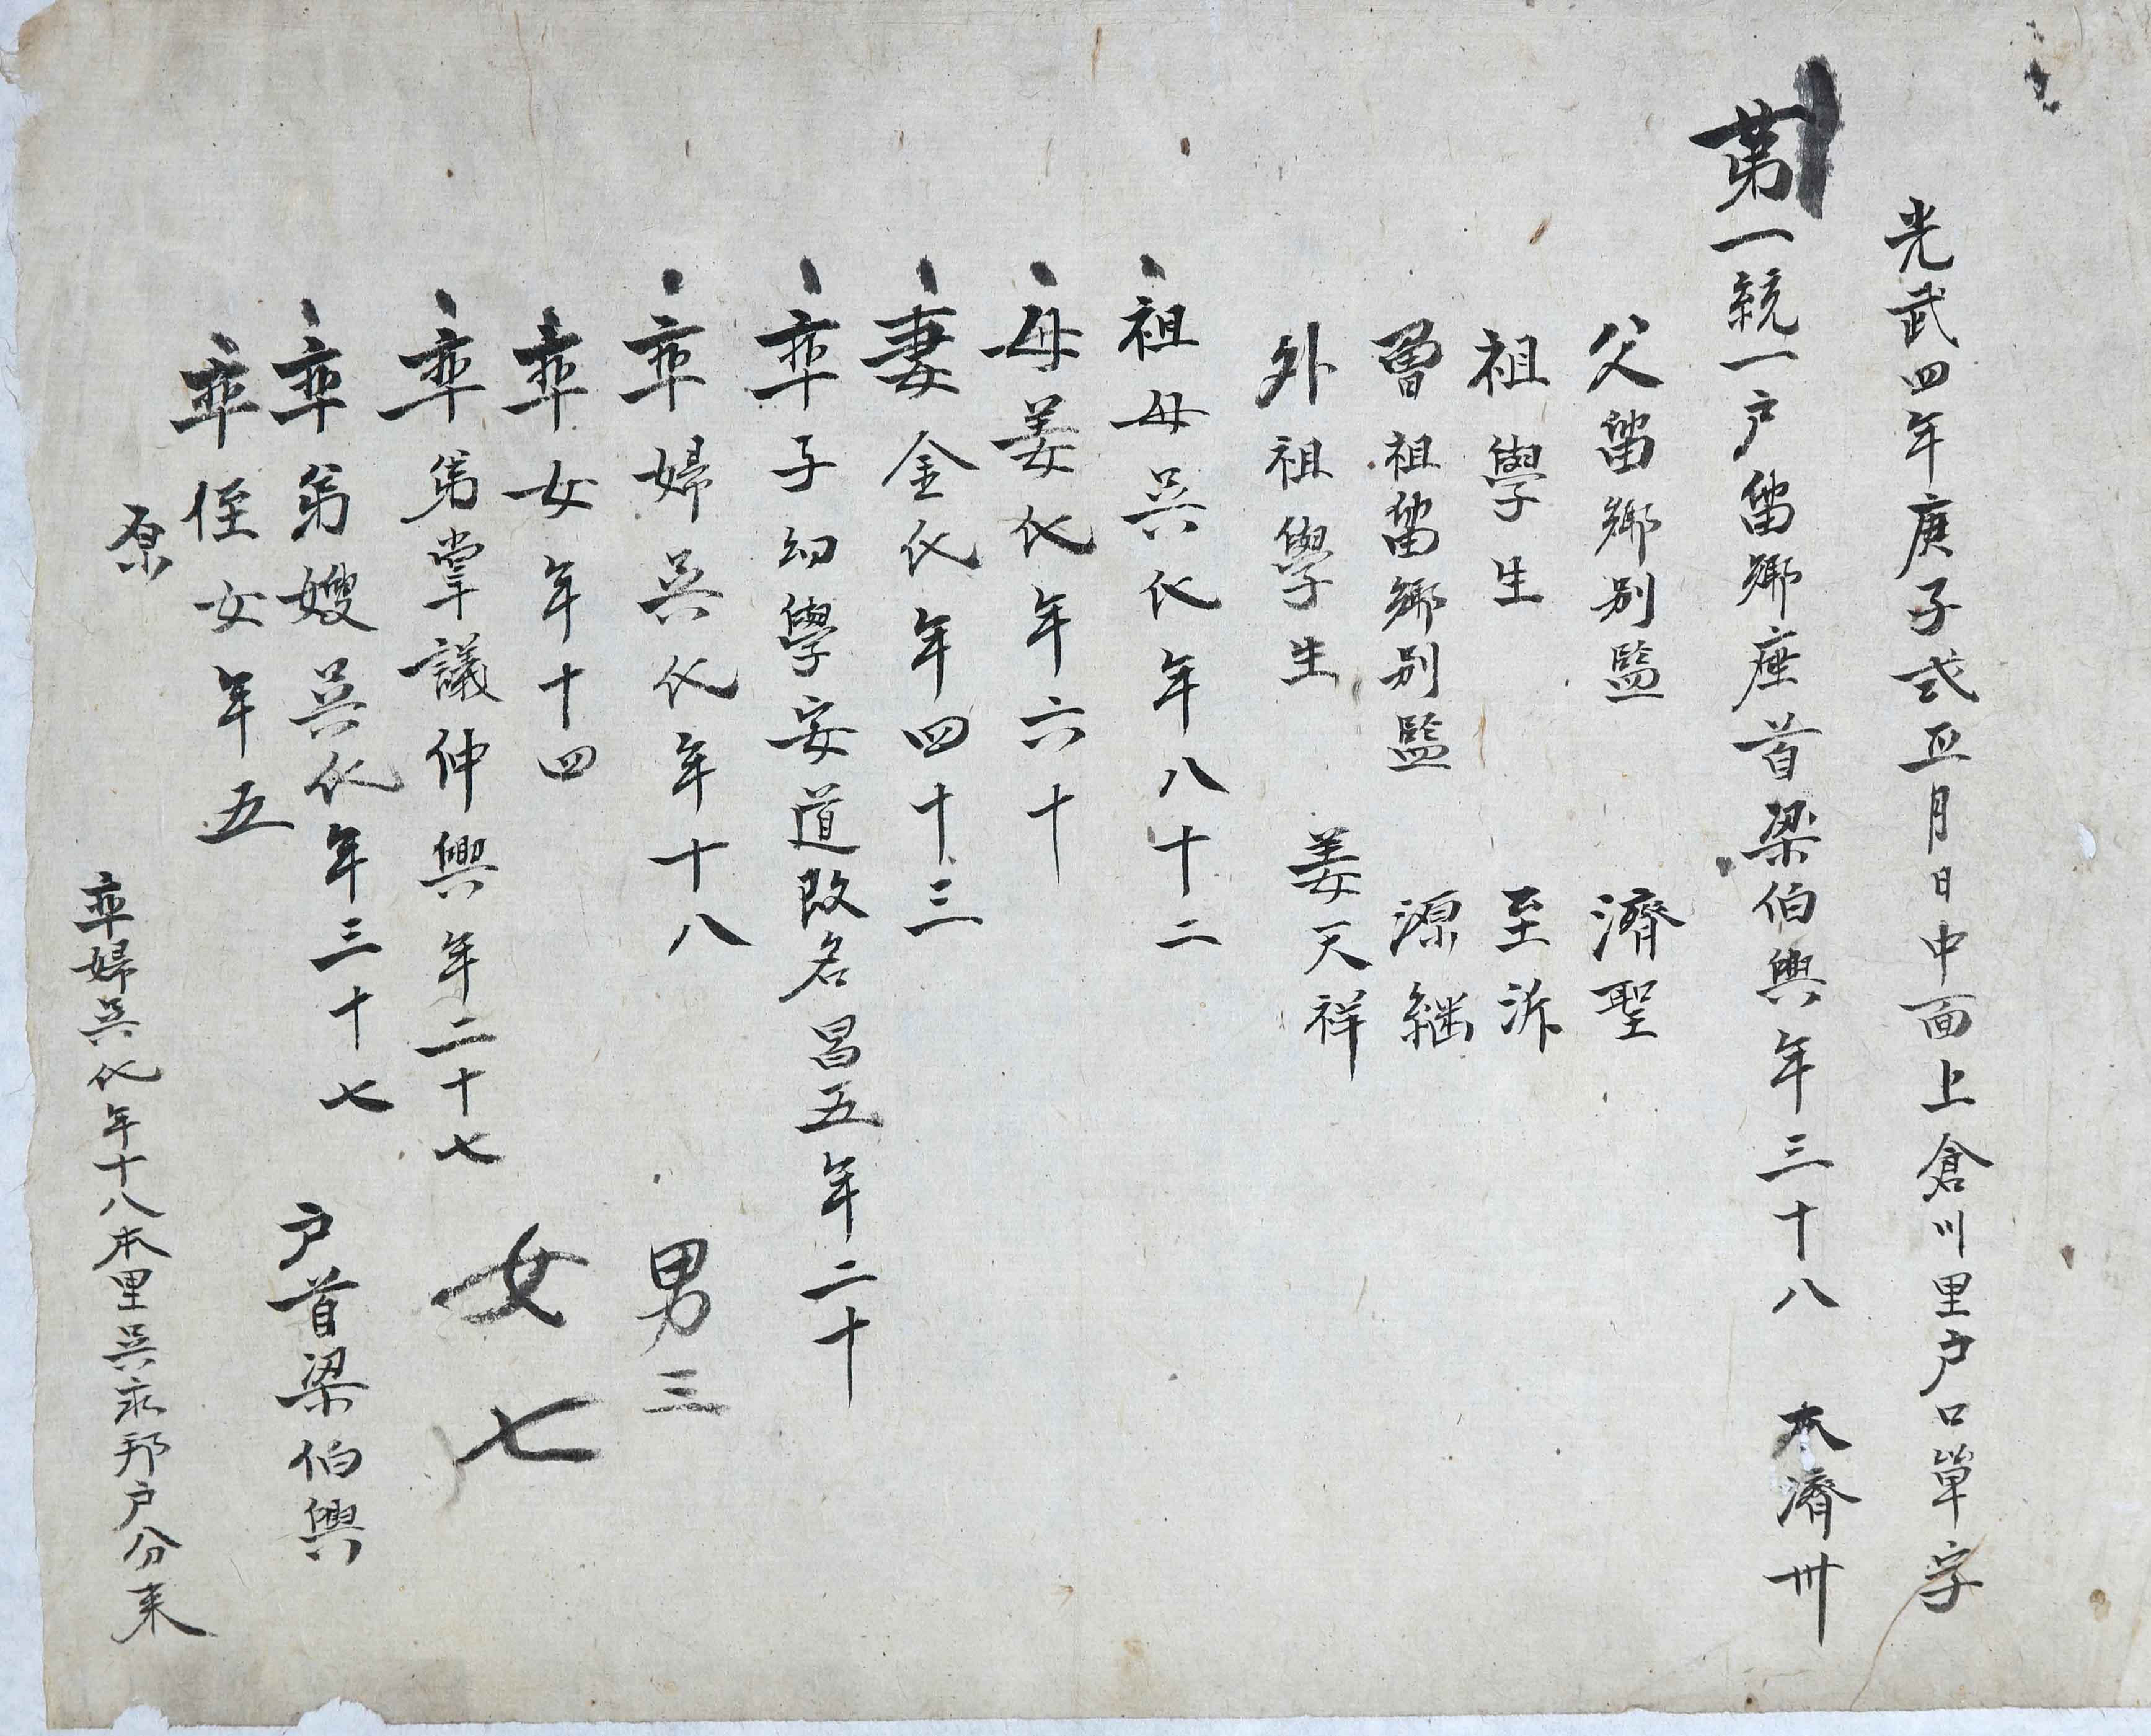 光武四年庚子式正月日中面上倉川里戶口單字
第一統一戶留鄉座首梁伯興年三十八 本濟州
父留鄉別監 濟聖
祖學生 至泝
曾祖留鄉別監 源繼
外祖學生 姜天祥
祖母吳氏年八十二
母姜氏年六十
妻金氏年四十三
率子幼學安道改名昌五年二十
率婦吳氏年十八
率女年十四
率弟掌議仲興年二十七
率弟嫂吳氏年三十七
率侄女年五
男三
女七
戶首梁伯興
原
率婦吳氏年十八本里吳永邦戶分來